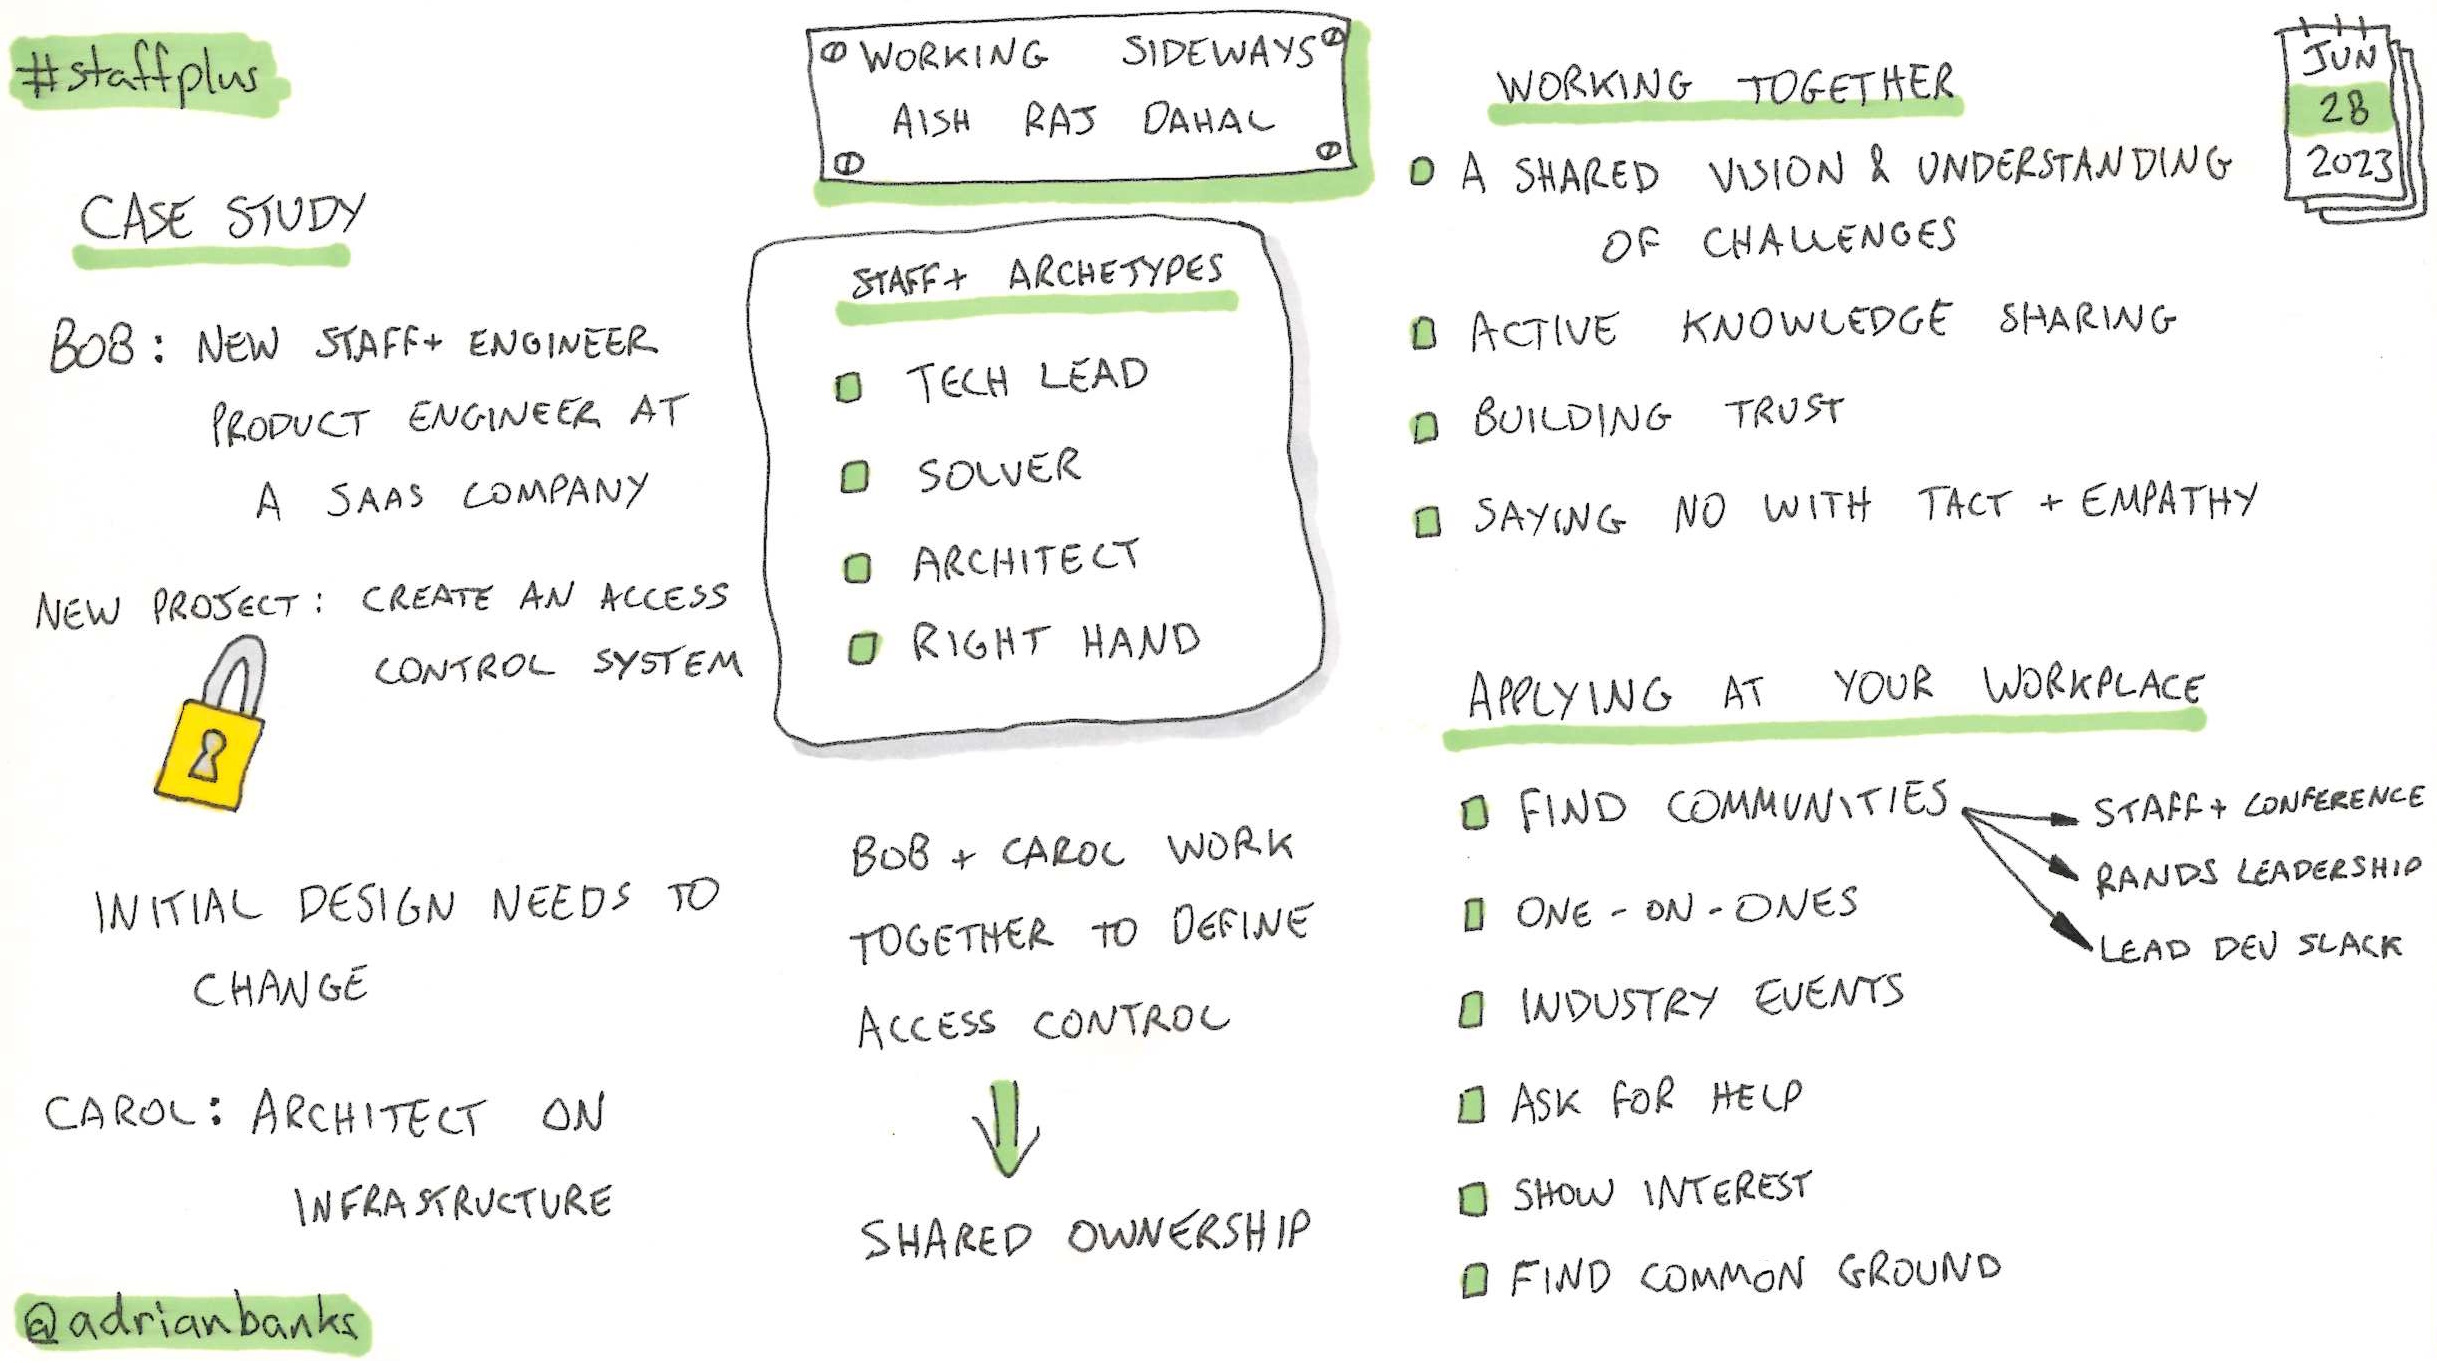 #staffplus
WORKING SIDEWAYS
AISH RAJ DAHAL
JUN
28
2023
CASE STUDY
BOB: NEW STAFF+ ENGINEER
PRODUCT ENGINEER AT
A SAAS COMPANY
NEW PROJECT: CREATE AN ACCESS
CONTROL SYSTEM
INITIAL DESIGN NEEDS TO
CHANGE
CAROL: ARCHITECT ON
INFRASTRUCTURE
@adrianbanks
STAFF+ ARCHETYPES
TECH LEAD
SOLVER
ARCHITECT
RIGHT HAND
BOB + CAROL WORK
TOGETHER TO DEFINE
ACCESS CONTROL
SHARED OWNERSHIP
WORKING TOGETHER
A SHARED VISION & UNDERSTANDING
OF CHALLENGES
ACTIVE KNOWLEDGE SHARING
BUILDING TRUST
SAYING NO WITH TACT + EMPATHY
APPLYING AT YOUR WORKPLACE
FIND COMMUNITIES
STAFF+ CONFERENCE
RANDS LEADERSHIP
LEAD DEV SLACK
ONE-ON-ONES
INDUSTRY EVENTS
ASK FOR HELP
SHOW INTEREST
FIND COMMON GROUND